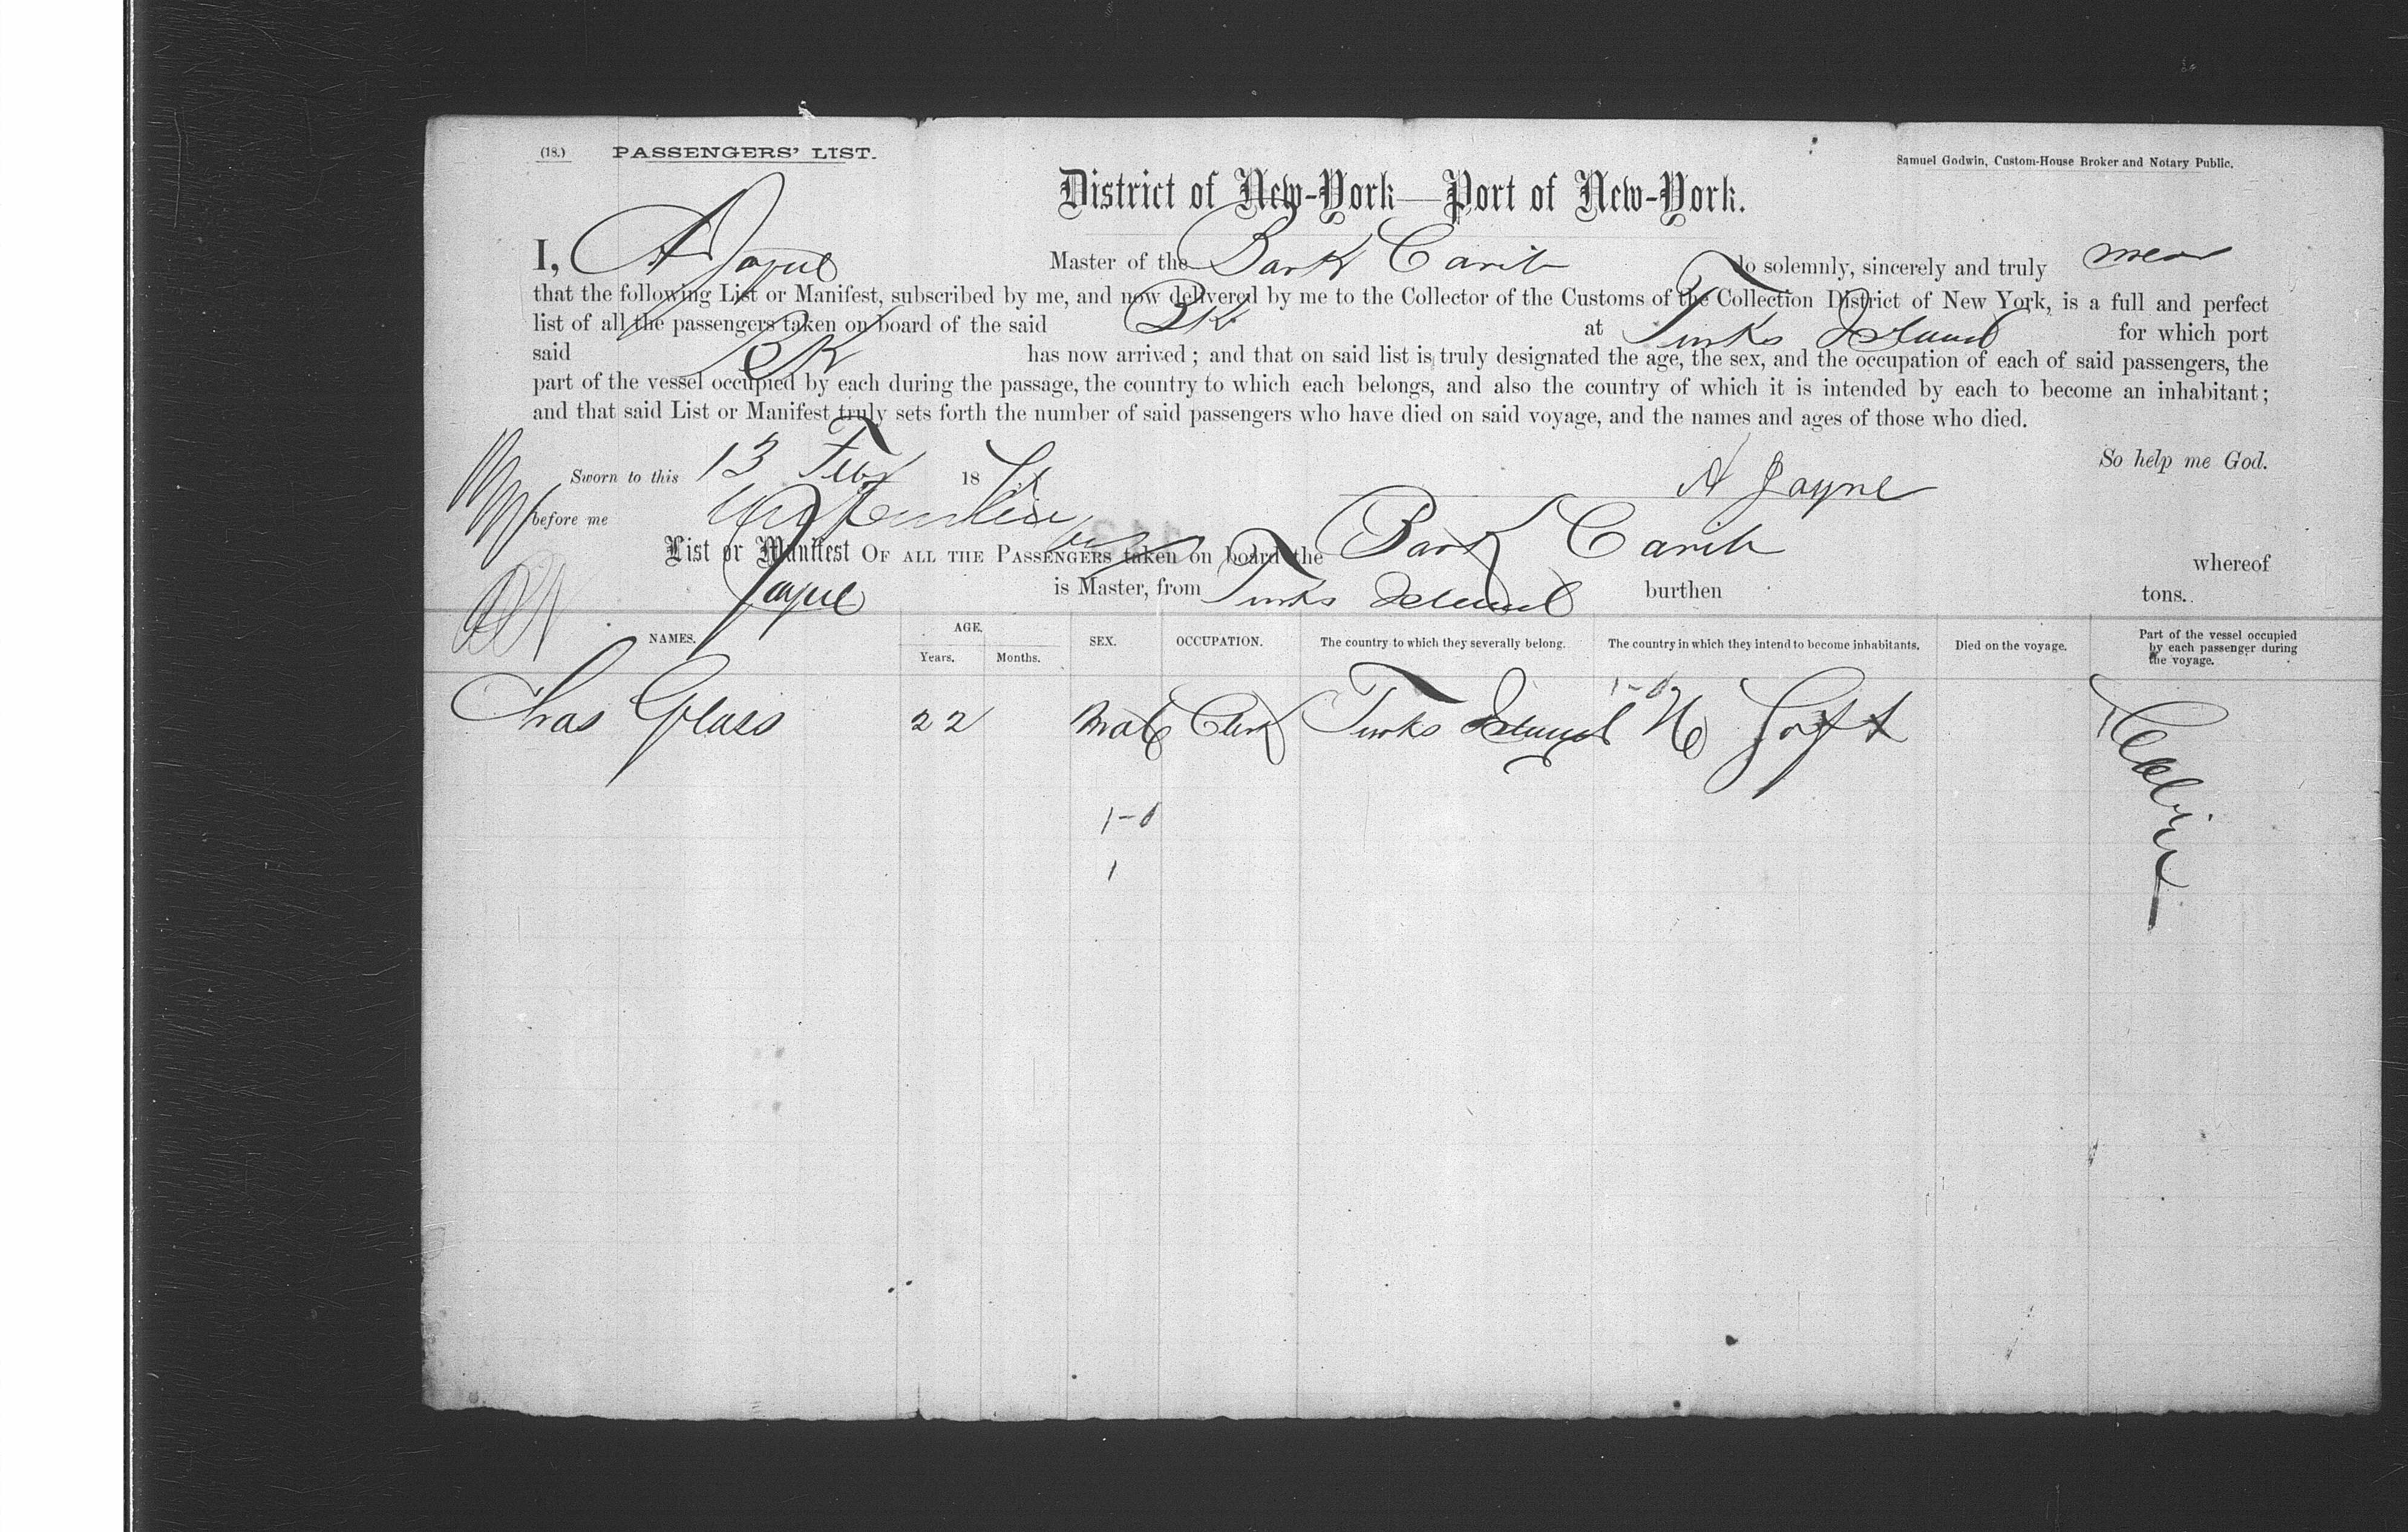 (18.) PASSENGERS' LIST.
Samuel Godwin, Custom-House Broker and Notary Public.
District of New-York—Port of New-York.
I, A Jayne Master of the Bark Carib do solemnly, sincerely and truly swear
that the following List or Manifest, subscribed by me, and now delivered by me to the Collector of the Customs of the Collection District of New York, is a full and perfect
list of all the passengers taken on board of the said Bk at Turks Island for which port
said Bk has now arrived; and that on said list is truly designated the age, the sex, and the occupation of each of said passengers, the
part of the vessel occupied by each during the passage, the country to which each belongs, and also the country of which it is intended by each to become an inhabitant;
and that said List or Manifest truly sets forth the number of said passengers who have died on said voyage, and the names and ages of those who died.
So help me God.
Sworn to this 13 Feby 18
A Jayne
before me
List or Manifest OF ALL THE PASSENGERS taken on board the Bark Carib whereof
Jayne is Master, from Turks Island burthen tons.
NAMES. AGE. Years. Months. SEX. OCCUPATION. The country to which they severally belong. The country in which they intend to become inhabitants. Died on the voyage. Part of the vessel occupied by each passenger during the voyage.
1-0
Chas Glass 22 Male Clerk Turks Island Cabin
1-0
1